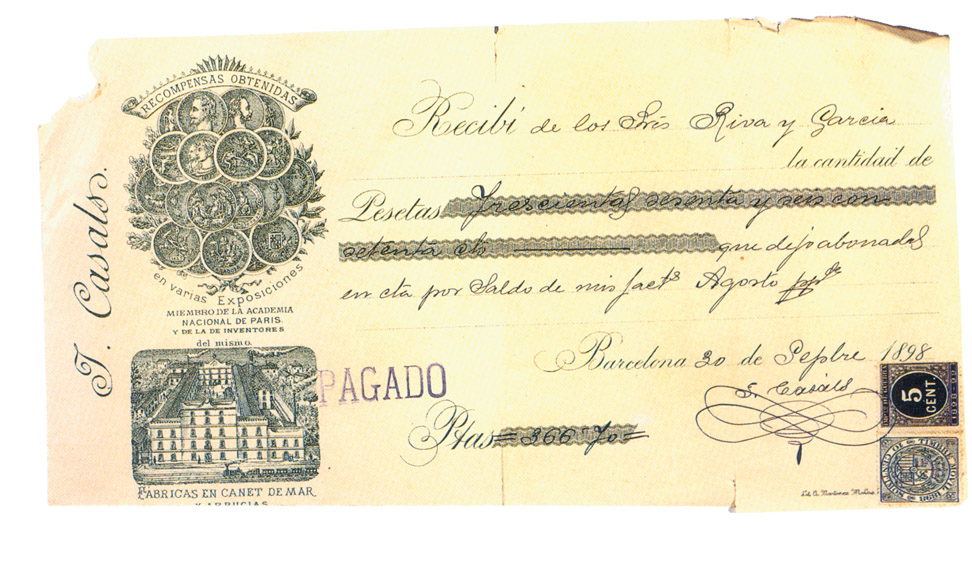 RECOMPENSAS OBTENIDAS
en varias Exposiciones
MIEMBRO DE LA ACADEMIA
NACIONAL DE PARIS.
Y DE LA DE INVENTORES
del mismo.
FABRICAS EN CANET DE MAR
Y ARBUCIAS
Casals.
Recibí de los Srés Riva y Garcia
la cantidad de
Pesetas Trescientas sesenta y seis con
setenta cts que dejo abonadas
en cta por Saldo de mis facts Agosto
Barcelona 30 de Sepbre 1898
Casals
PAGADO
Ptas = 366'70 =
5
CENT.
1898-99
TIMBRE MOVIL
Lit. Martinez